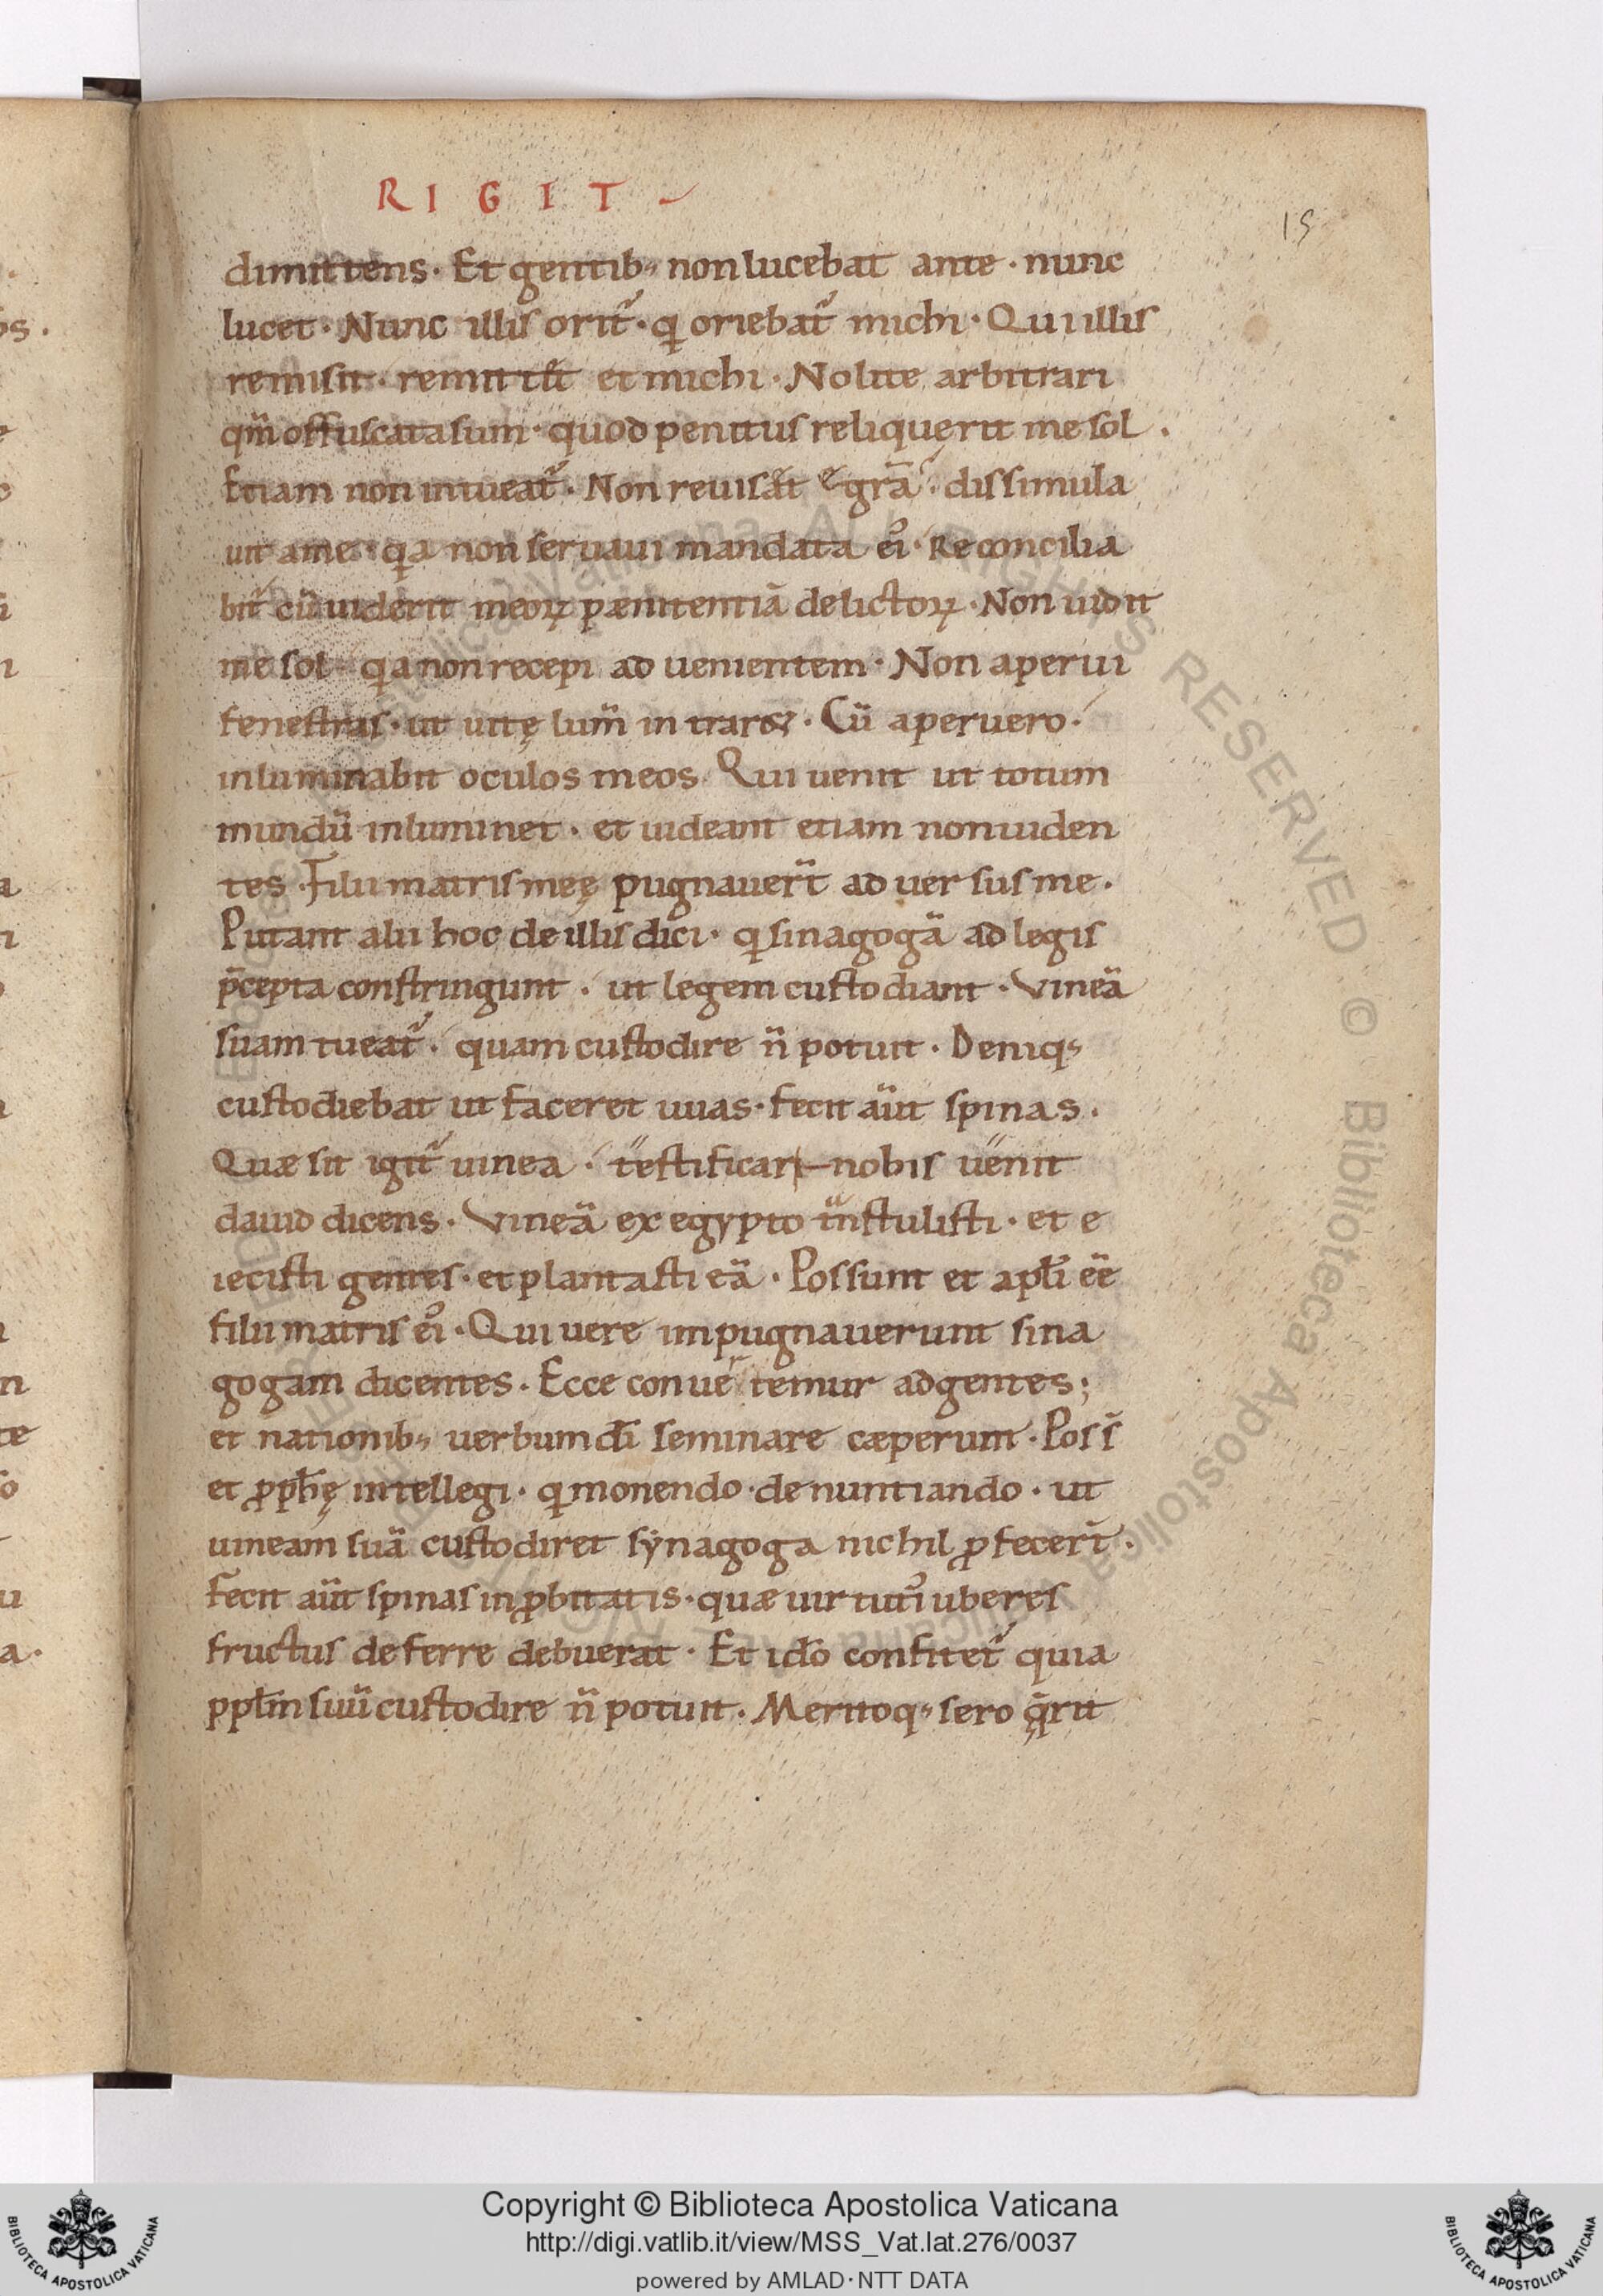 RIGIT
15
dimittens · Et gentib; non lucebat ante · nunc
lucet · Nunc illis orit᷑ · q oriebat᷑ michi · Qui illis
remisit · remittit et michi · Nolite arbitrari
qm̄ offuscata sum · quod penitus reliquerit me sol .
Etiam non intueat᷑ · Non reuisat grā · dissimula
uit a me · qa non seruaui mandata ei᷒ · Reconcilia
bit᷑ cū uiderit meoꝝ pænitentiā delictoꝝ · Non uidit
me sol · qa non recepi aduenientem · Non aperui
fenestras · ut uitę lum̄ intraret · Cū aperuero ·
inluminabit oculos meos Qui uenit ut totum
mundū inluminet · et uideant etiam non uiden
tes · Filii matris meę pugnauer̄t aduersus me .
Putant alii hoc de illis dici · q sinagogā ad legis
p̄cepta constringunt · ut legem custodiant · Vineā
suam tueat᷑ · quam custodire n̄ potuit · Deniq;
custodiebat ut faceret uuas · fecit aūt spinas .
Quæ sit igit᷑ uinea · testificari nobis uenit
dauid dicens · Vineā ex egypto tn̄stulisti · et e
iecisti gentes · et plantasti eā · Possunt et apłi ēē
filii matris ei᷒ · Qui uere impugnauerunt sina
gogam dicentes · Ecce conuertemur ad gentes;
et nationib; uerbum dī seminare cæperunt · Poss̄
et ꝓph̄ę intellegi · q monendo · denuntiando · ut
uineam suā custodiret synagoga nichil ꝓfecer̄t .
Fecit aūt spinas inꝓbitatis · quæ uirtutū uberes
fructus deferre debuerat · Et ido̅ confitet᷑ quia
ppłm suū custodire n̄ potuit · Meritoq; sero q̄rit
Copyright © Biblioteca Apostolica Vaticana
http://digi.vatlib.it/view/MSS_Vat.lat.276/0037
powered by AMLAD·NTT DATA
BIBLIOTECA APOSTOLICA VATICANA
BIBLIOTECA APOSTOLICA VATICANA